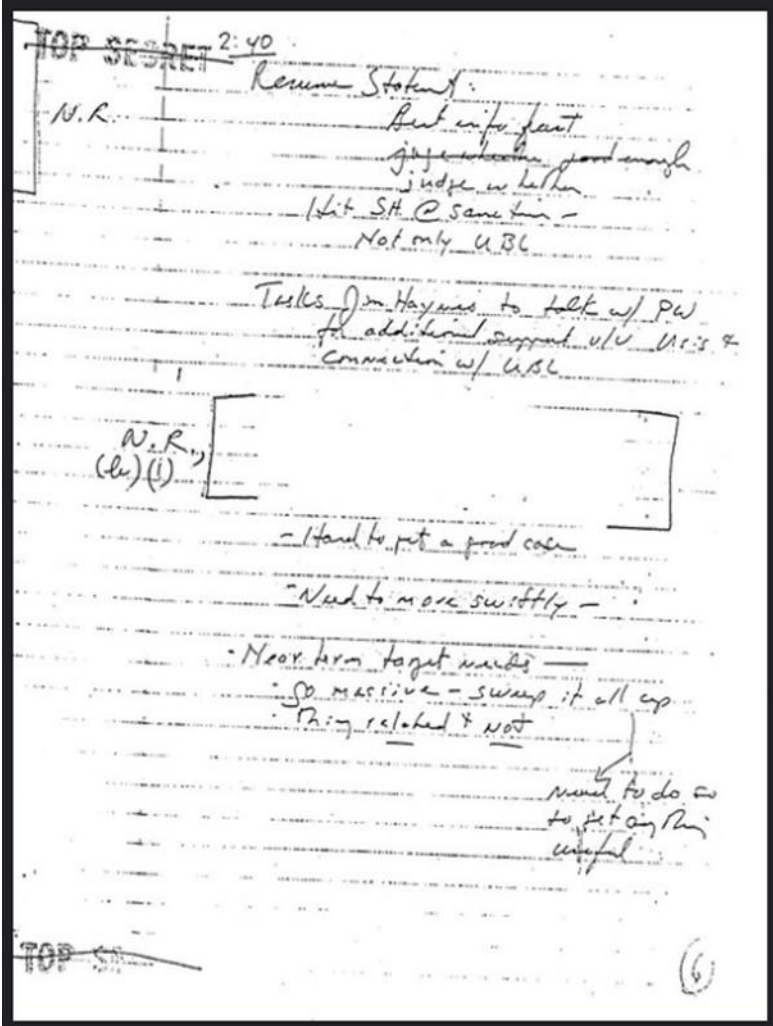 TOP SECRET 2:40
Resume Statement:
N.R.
Best info fast
judge whether good enough
judge whether
Hit S.H. @ same time -
Not only UBL
Tasks Jim Haynes to talk w/ PW
for additional support v/v Usis &
connection w/ UBL
N.R.,
(b)(1)
- Hard to get a good case
- Need to move swiftly -
- Near term target needs -
- Go massive - sweep it all up
Thing related & not
Need to do so
to get anything
useful
TOP SE
6